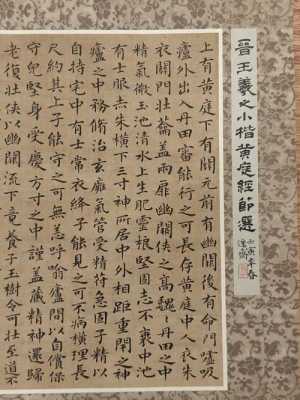 晉王羲之小楷黃庭經節選
壬寅年春
上有黃庭下有關元前有幽闕後有命門噓吸
廬外出入丹田審能行之可長存黃庭中人衣朱
衣關門壯籥蓋兩扉幽闕俠之高魏丹田之中
精氣微玉池清水上生肥靈根堅固志不衰中池
有士服赤朱橫下三寸神所居中外相距重閉之神
廬之中務脩治玄膺氣管受精符急固子精以
自持宅中有士常衣絳子能見之可不病橫理長
尺約其上子能守之可無恙呼噏廬間以自償保
守兒堅身受慶方寸之中謹蓋藏精神還歸
老復壯俠以幽闕流下竟養子玉樹令可壯至道不